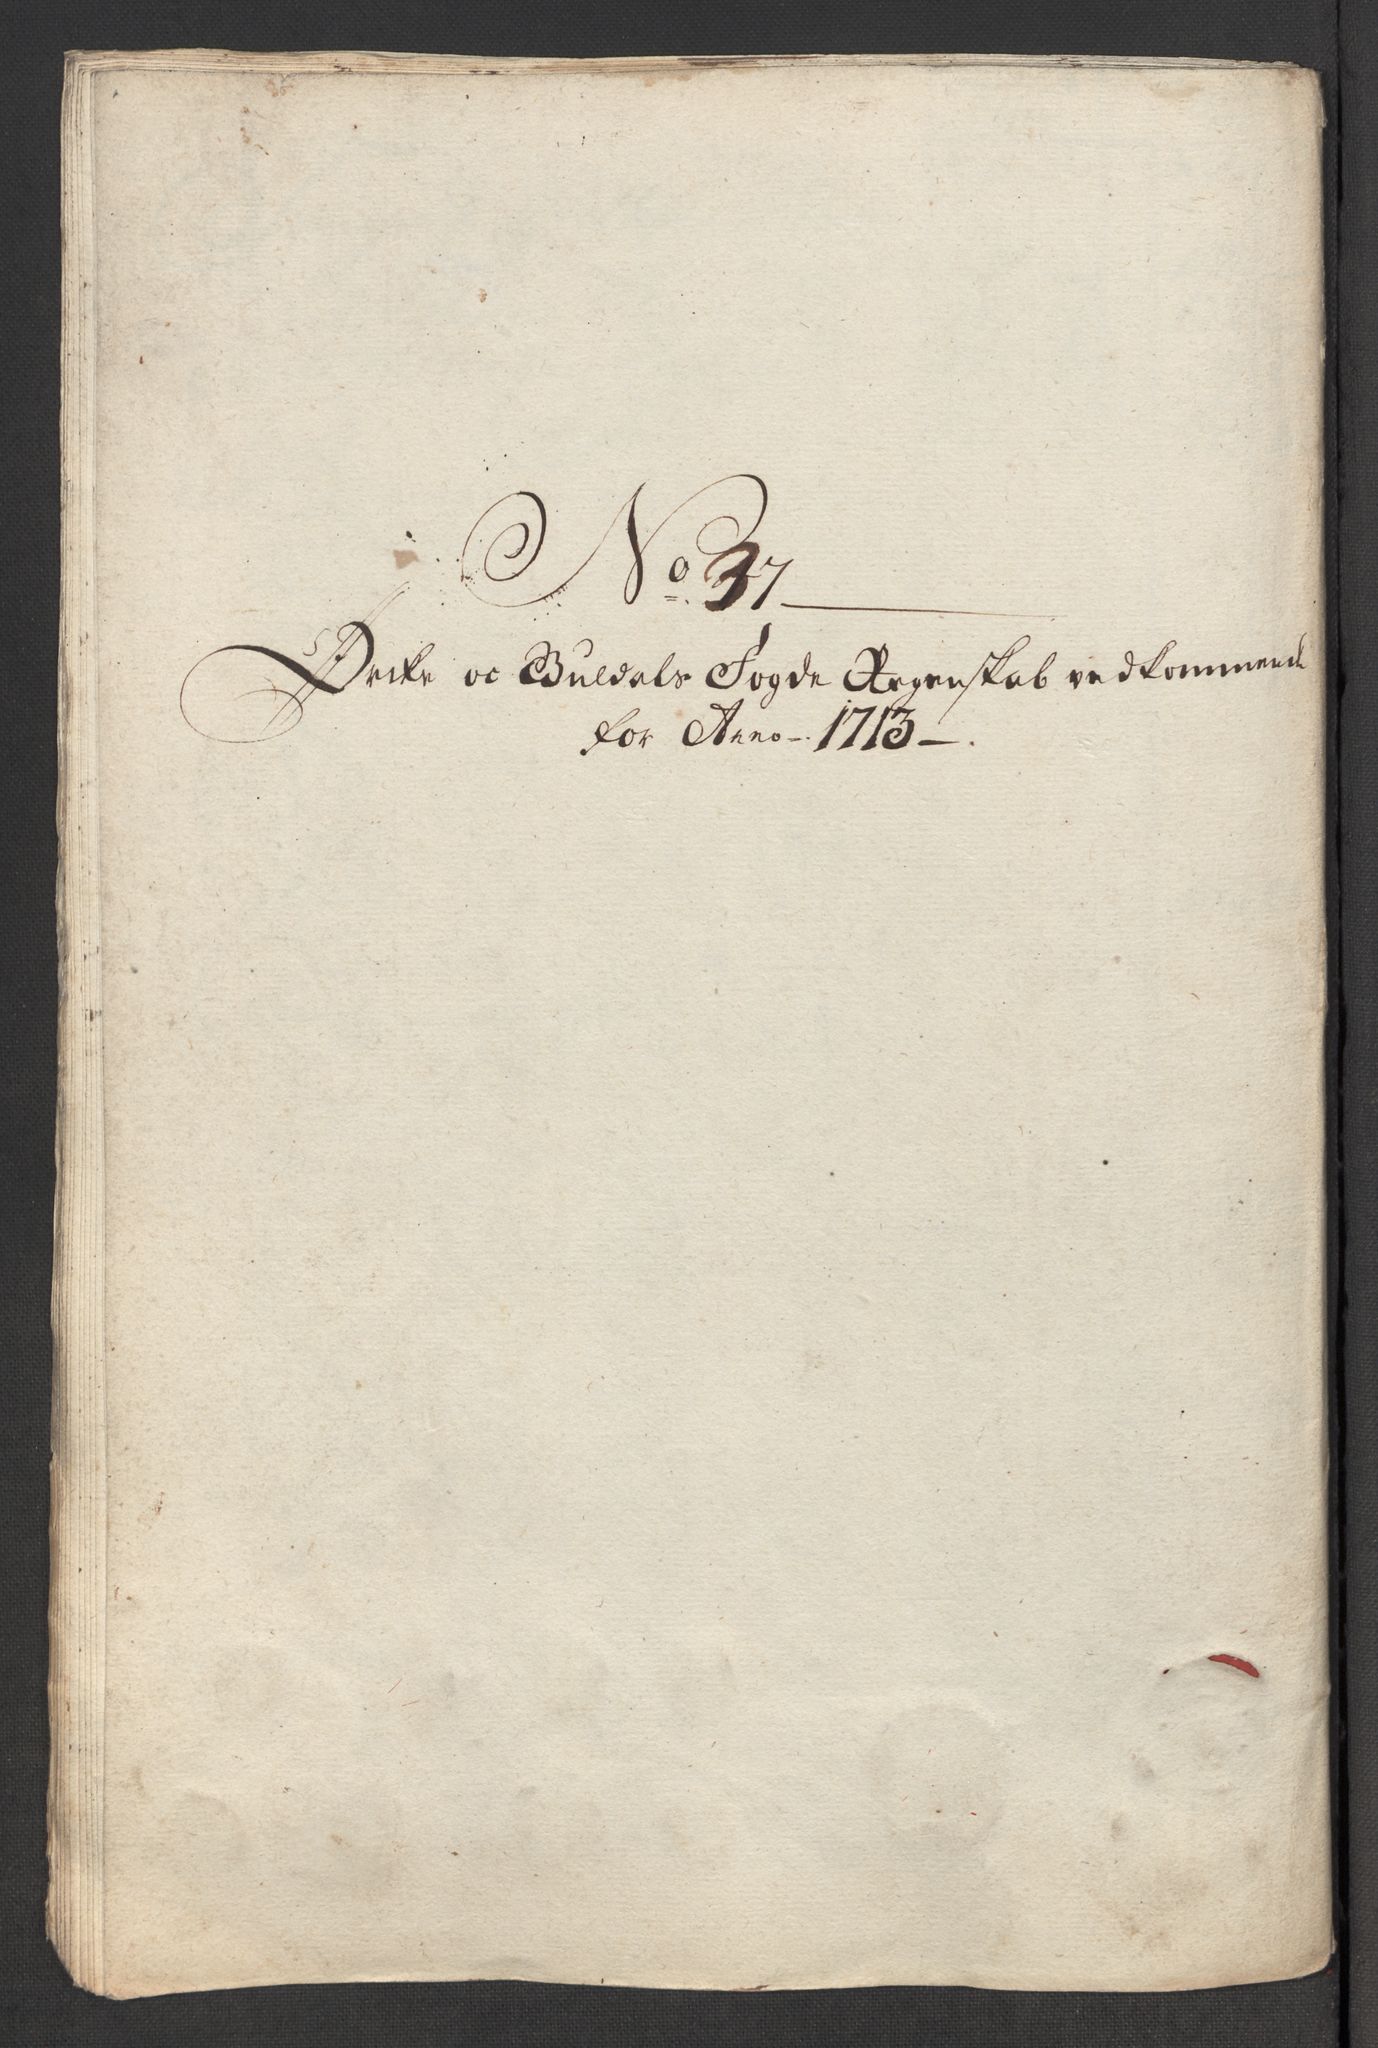 No. 37
Örcke oc Guldals Fogde Regenskab vedkommende
for Anno 1713